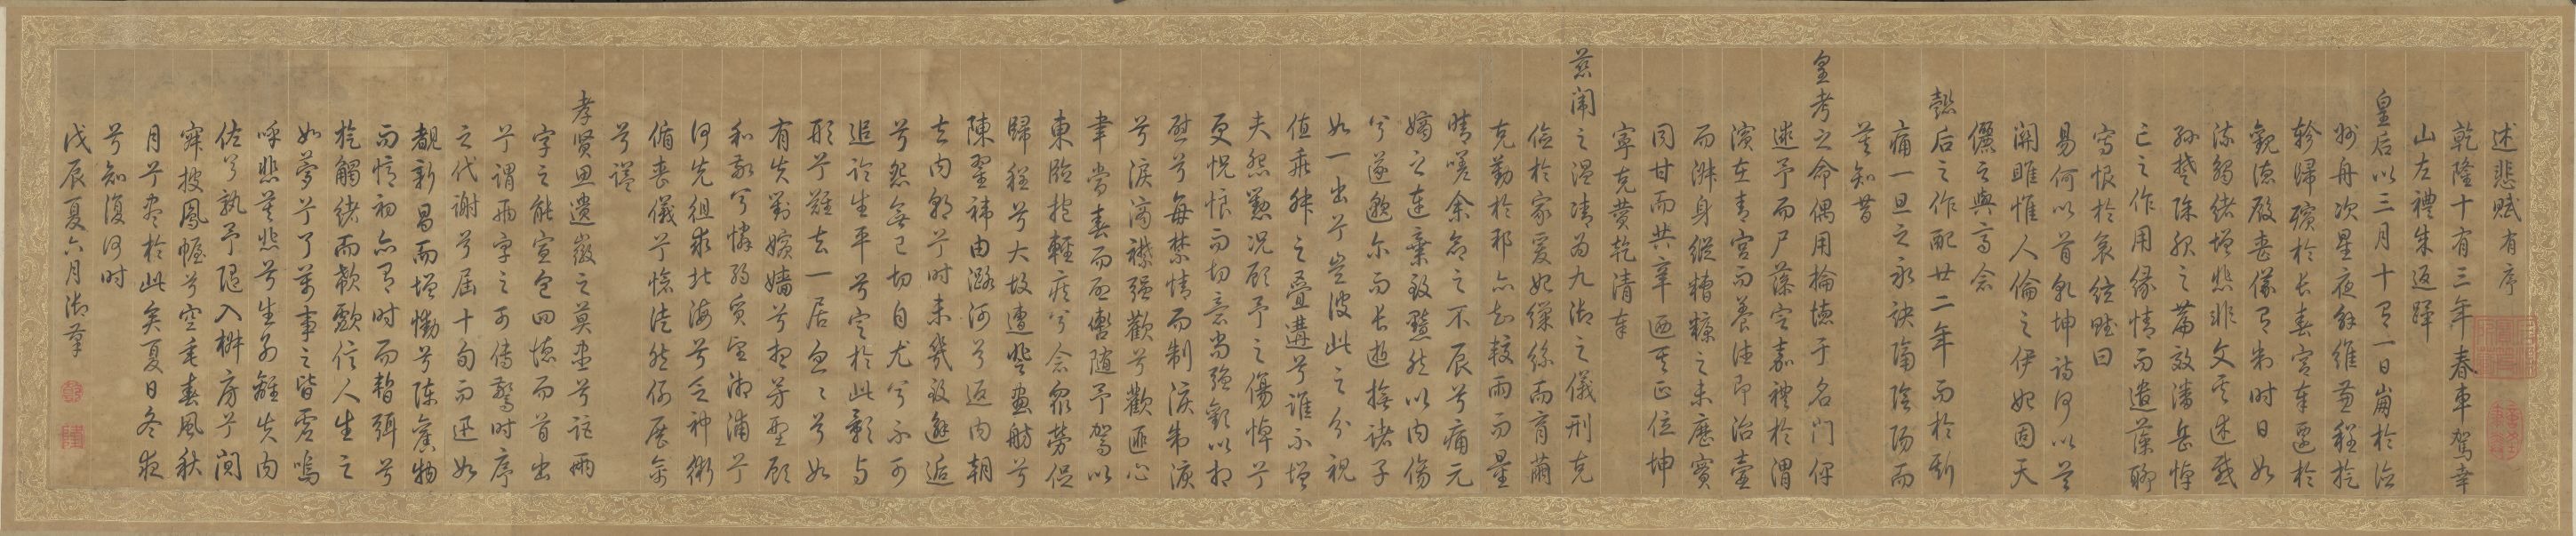 述悲賦有序
乾隆十有三年春車駕幸
山左禮成返蹕
皇后以三月十有一日崩於德
州舟次星夜維並程旋
軫歸殯於長春宮奉遷於
觀德殿喪儀有制時日如
流觸緒增悲非文奚述感
孫楚除服之篇效潘岳悼
亡之作用緣情而遣藻聊
寫恨於哀絃賦曰
易何以首乾坤詩何以首
關雎惟人倫之伊始固天
儷之與齊念
懿后之作配廿二年而於斯
痛一旦之永訣隔陰陽而
莫知昔
皇考之命偶用掄德于名門俾
逑予而尸藻定嘉禮於渭
濱在青宮而養德即治壼
而淑身縱糟糠之未歷實
同甘而共辛迺其正位坤
寧克贊乾清奉
慈闈之溫凊為九御之儀刑克
儉於家爰始繅絲而育繭
克勤於邦亦知較雨而量
晴嗟余命之不辰兮痛元
嫡之連棄致黯然以內傷
兮遂邈尔而長逝撫諸子
如一出兮豈彼此之分視
值乖舛之疊遘兮誰不增
夫怨懟況顧予之傷悼兮
更怳悢而切意尚強歡以相
慰兮每禁情而制淚制淚
兮淚滴襟強歡兮歡匪心
聿當春而啟轡隨予駕以
東臨抱輕疾兮念眾勞促
歸程兮大故遭登畫舫兮
陳翟褘由潞河兮返內朝
去內朝兮時未幾致邂逅
兮怨無已切自尤兮不可
追論生平兮定於此影與
形兮難去一居忽忽兮如
有失對嬪嬙兮想芳型顧
和敬兮憐弱質望湘浦兮
何先徂求北海兮乏神術
循喪儀兮愴徒然例展禽
兮諡
孝賢思遺徽之莫盡兮詎兩
字之能宣包四德而首出
兮謂兩字之可傳驚時序
之代謝兮屆十旬而迅如
覩新昌而增慟兮陳舊物
而憶初亦有時而暫弭兮
旋觸緒而欷歔信人生之
如夢兮了萬事之皆虛嗚
呼悲莫悲兮生別離失內
佐兮孰予隨入椒房兮闃
寂披鳳幄兮空垂春風秋
月兮盡於此矣夏日冬夜
兮知復何時
戊辰夏六月御筆
乾
隆